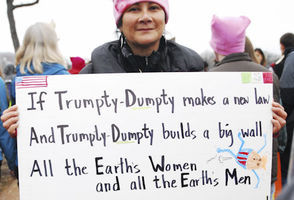 If Trumpty-Dumpty makes a new law
And Trumply-Dumpty builds a big wall
All the Earth's Women
and all the Earth's Men